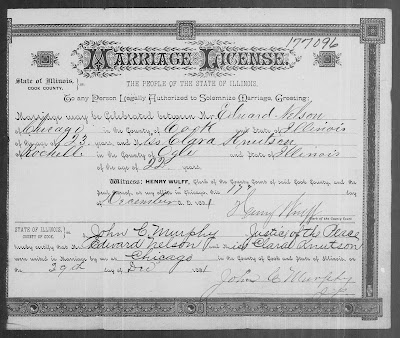 177096
MARRIAGE LICENSE.
State of Illinois,
COOK COUNTY.
THE PEOPLE OF THE STATE OF ILLINOIS,
To any Person Legally Authorized to Solemnize Marriage, Greeting:
Marriage may be Celebrated between Mr Edward Nelson
of Chicago in the County of Cook and State of Illinois
of the age of 33 years, and Miss Clara Knutsen
of Rochelle in the County of Ogle and State of Illinois
of the age of 22 years.
Witness: HENRY WULFF, Clerk of the County Court of said Cook County, and the
Seal thereof, at my office in Chicago, this 17 day
of December A.D. 189
Henry Wulff
Clerk of the County Court
STATE OF ILLINOIS,
COUNTY OF COOK.
I, John C Murphy a Justice of the Peace
hereby certify that Mr Edward Nelson and Miss Clara Knutson
were united in Marriage by me at Chicago in the County of Cook and State of Illinois, on
the 29th day of Dec 189
John C Murphy
J.P.